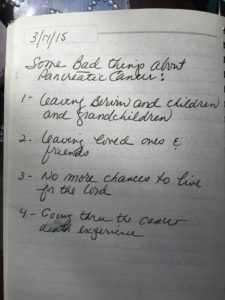 3/17/15
Some Bad things about
Pancreatic Cancer:
1- Leaving and children
and grandchildren
2- leaving loved ones &
friends
3- No more chances to live
for the Lord
4- Going thru the cancer
death experience